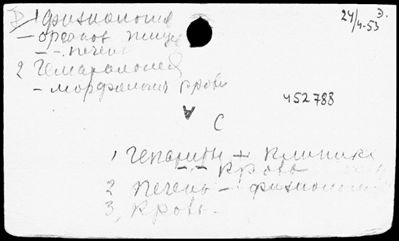 1 Физиология
24/4-53
Э.
- органов пище
- - печень
2 Гематология
- морфология крови
452788
A
C
1 Гепарины + клиника
- - кровь
2 Печень - физиология
3, Кровь.